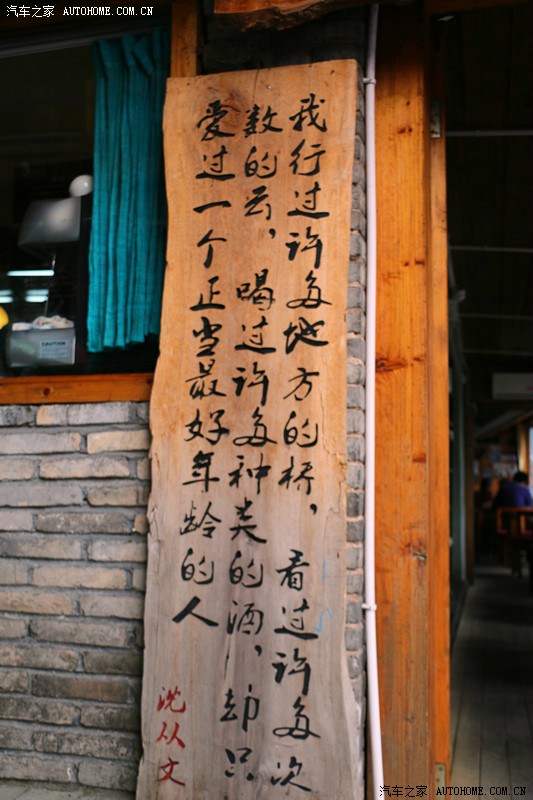 汽车之家 AUTOHOME.COM.CN
我行过许多地方的桥，看过许多次
数的云，喝过许多种类的酒，却只
爱过一个正当最好年龄的人
沈从文
CAUTION
汽车之家 AUTOHOME.COM.CN